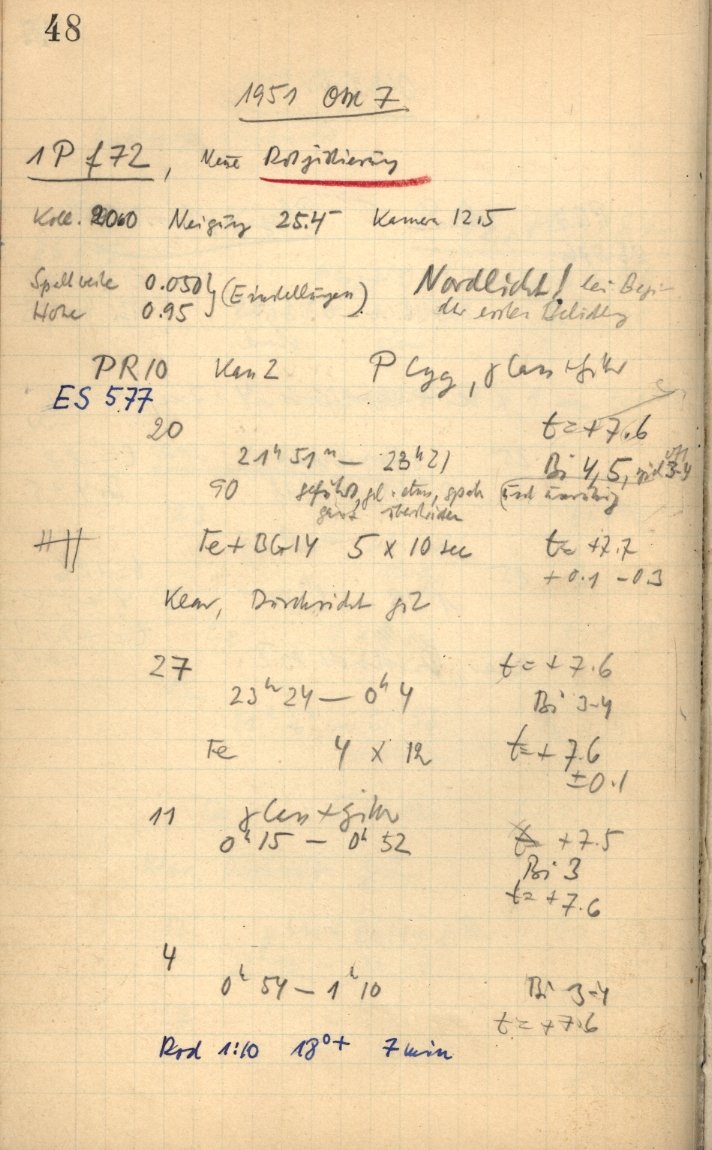 48
1951 Okt 7
1 P f 72, Neue Rotjustierung
Koll. 20.0 Neigung 25.4 Kamera 12.5
Spaltweite 0.050 } (Einstellungen) Nordlicht! bei Beginn
Höhe 0.95 der ersten Belichtung
PR10 Kas 2 P Cyg, γ Cass
ES 577
20 t = +7.6
21h 51m — 23h 21 Bi 4, 5,
90 geführt,
ganz
Fe + BG14 5 x 10 sec t = +7.7
+0.1 -0.3
Klar, Durchsicht gut
27 t = +7.6
23h 24 — 0h 4 Bi 3-4
Fe 4 x 12 t = +7.6
±0.1
11 γ Cass + Filter
0h 15 — 0h 52 t +7.5
Bi 3
t = +7.6
4
0h 54 — 1h 10 Bi 3-4
t = +7.6
Rod 1:10 18°+ 7 min